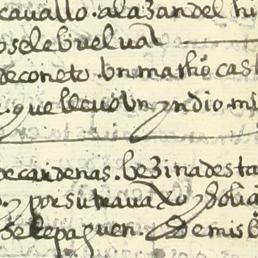 cavallo. alazan del hi
o se le buelva
de coneto. un macho cas
. que llevo un yndio. mi
de cardenas. bezina desta
. y por su travaxo y solia
se le paguen. De mis b